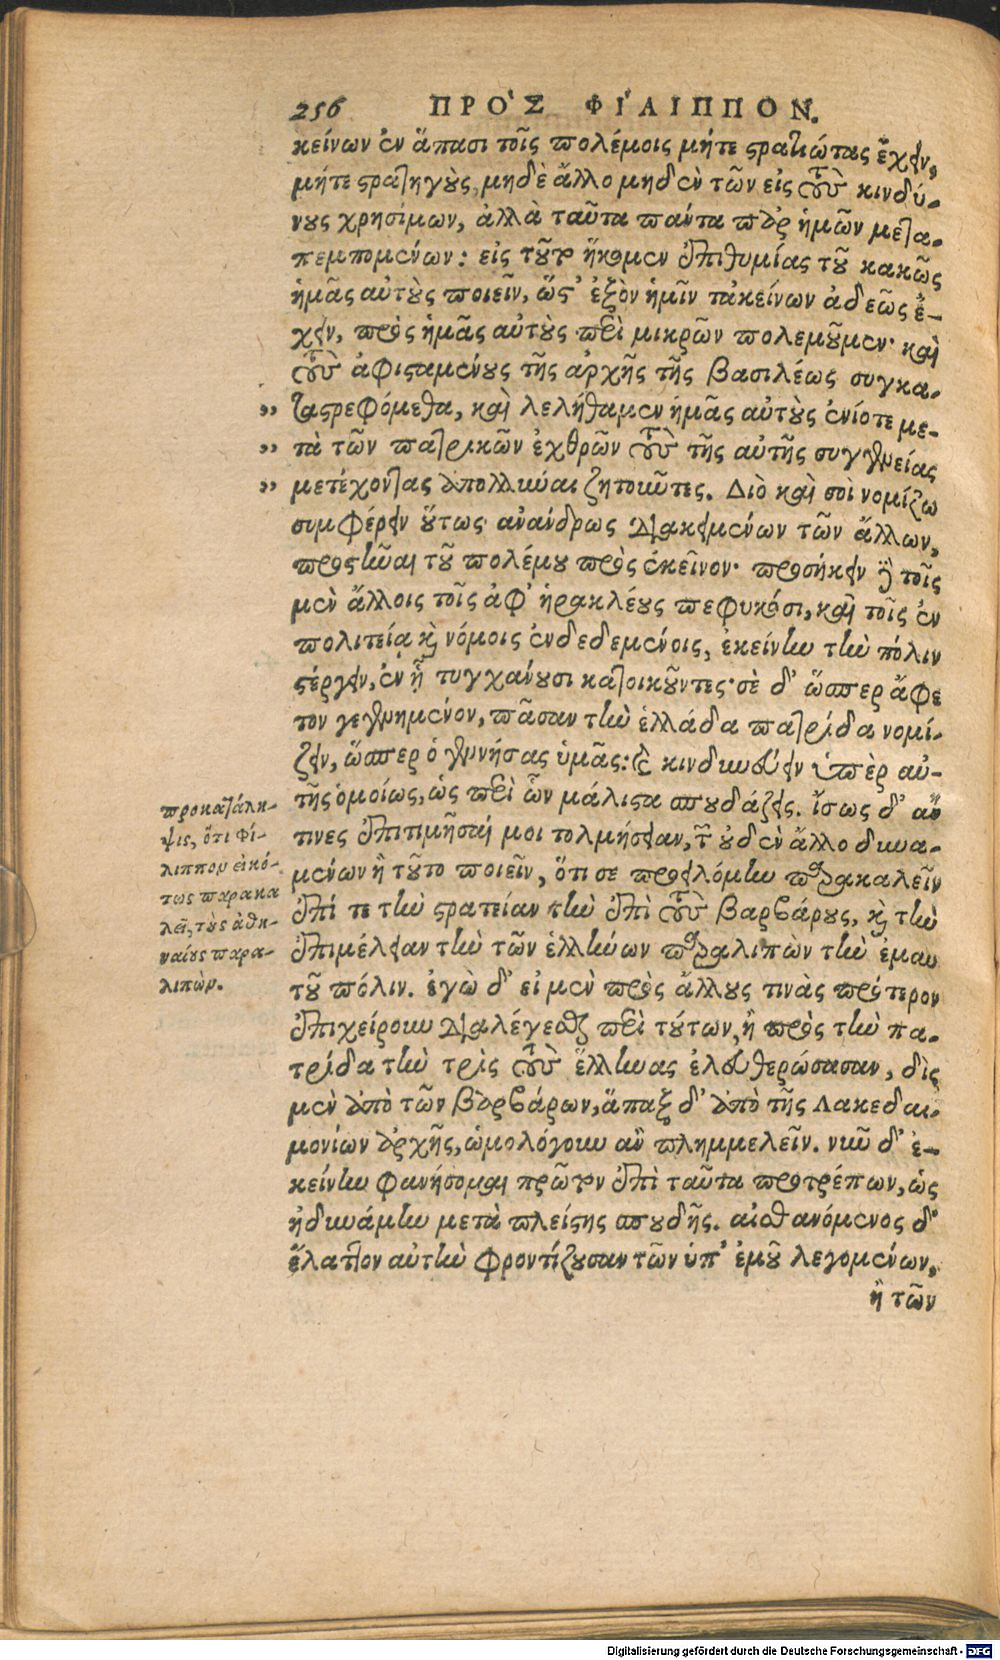 256 ΠΡΟ῾Σ ΦΙ΄ΛΙΠΠΟΝ.
κείνων ἐν ἅπασι τοῖς πολέμοις μήτε στρατιώτας ἔχειν,
μήτε στρατηγοὺς, μηδὲ ἄλλο μηδὲν τῶν εἰς τοὺς κινδύ-
νους χρησίμων, ἀλλὰ ταῦτα πάντα παρ ἡμῶν μετα-
πεμπομένων: εἰς τοῦτο ἥκομεν ἐπιθυμίας τοῦ κακῶς
ἡμᾶς αὐτοὺς ποιεῖν, ὥστ' ἐξὸν ἡμῖν τἀκείνων ἀδεῶς ἔ-
χειν, πρὸς ἡμᾶς αὐτοὺς περὶ μικρῶν πολεμοῦμεν· καὶ
τοὺς ἀφισταμένους τῆς ἀρχῆς τῆς βασιλέως συγκα-
,, ταστρεφόμεθα, καὶ λελήθαμεν ἡμᾶς αὐτοὺς ἐνίοτε με-
,, τὰ τῶν πατρικῶν ἐχθρῶν τοὺς τῆς αὐτῆς συγγενείας
,, μετέχοντας ἀπολλύναι ζητοῦντες. Διὸ καὶ σοὶ νομίζω
συμφέρειν οὕτως ἀνάνδρως διακειμένων τῶν ἄλλων,
προστῆναι τοῦ πολέμου πρὸς ἐκεῖνον· προσήκειν δὲ τοῖς
μὲν ἄλλοις τοῖς ἀφ' ἡρακλέους πεφυκόσι, καὶ τοῖς ἐν
πολιτείᾳ καὶ νόμοις ἐνδεδεμένοις, ἐκείνην τὴν πόλιν
στέργειν, ἐν ᾗ τυγχάνουσι κατοικοῦντες· σὲ δ' ὥσπερ ἄφε
τον γεγενημένον, πᾶσαν τὴν ἑλλάδα πατρίδα νομί-
ζειν, ὥσπερ ὁ γεννήσας ὑμᾶς: καὶ κινδυνεύειν ὑπὲρ αὐ-
τῆς ὁμοίως, ὡς περὶ ὧν μάλιστα σπουδάζεις. ἴσως δ' ἄν
τινες ἐπιτιμῆσαί μοι τολμήσειαν, τῶν οὐδὲν ἄλλο δυνα-
μένων ἢ τοῦτο ποιεῖν, ὅτι σε προειλόμην παρακαλεῖν
ἐπί τε τὴν στρατείαν τὴν ἐπὶ τοὺς βαρβάρους, καὶ τὴν
ἐπιμέλειαν τὴν τῶν ἑλλήνων παραλιπὼν τὴν ἐμαυ
τοῦ πόλιν. ἐγὼ δ' εἰ μὲν πρὸς ἄλλους τινὰς πρότερον
ἐπιχείρουν διαλέγεσθαι περὶ τούτων, ἢ πρὸς τὴν πα-
τρίδα τὴν τρὶς τοὺς ἕλληνας ἐλευθερώσασαν, δὶς
μὲν ἀπὸ τῶν βαρβάρων, ἅπαξ δ' ἀπὸ τῆς Λακεδαι-
μονίων ἀρχῆς, ὡμολόγουν ἂν πλημμελεῖν. νῦν δ' ἐ-
κείνην φανήσομαι πρῶτον ἐπὶ ταῦτα προτρέπων, ὡς
ἠδυνάμην μετὰ πλείστης σπουδῆς. αἰσθανόμενος δ'
ἔλαττον αὐτὴν φροντίζουσαν τῶν ὑπ' ἐμοῦ λεγομένων,
ἢ τῶν
προκατάλη-
ψις, ὅτι φί-
λιππον εἰκό-
τως παρακα
λεῖ, τοὺς ἀθη-
ναίους παρα-
λιπών.
Digitalisierung gefördert durch die Deutsche Forschungsgemeinschaft - DFG